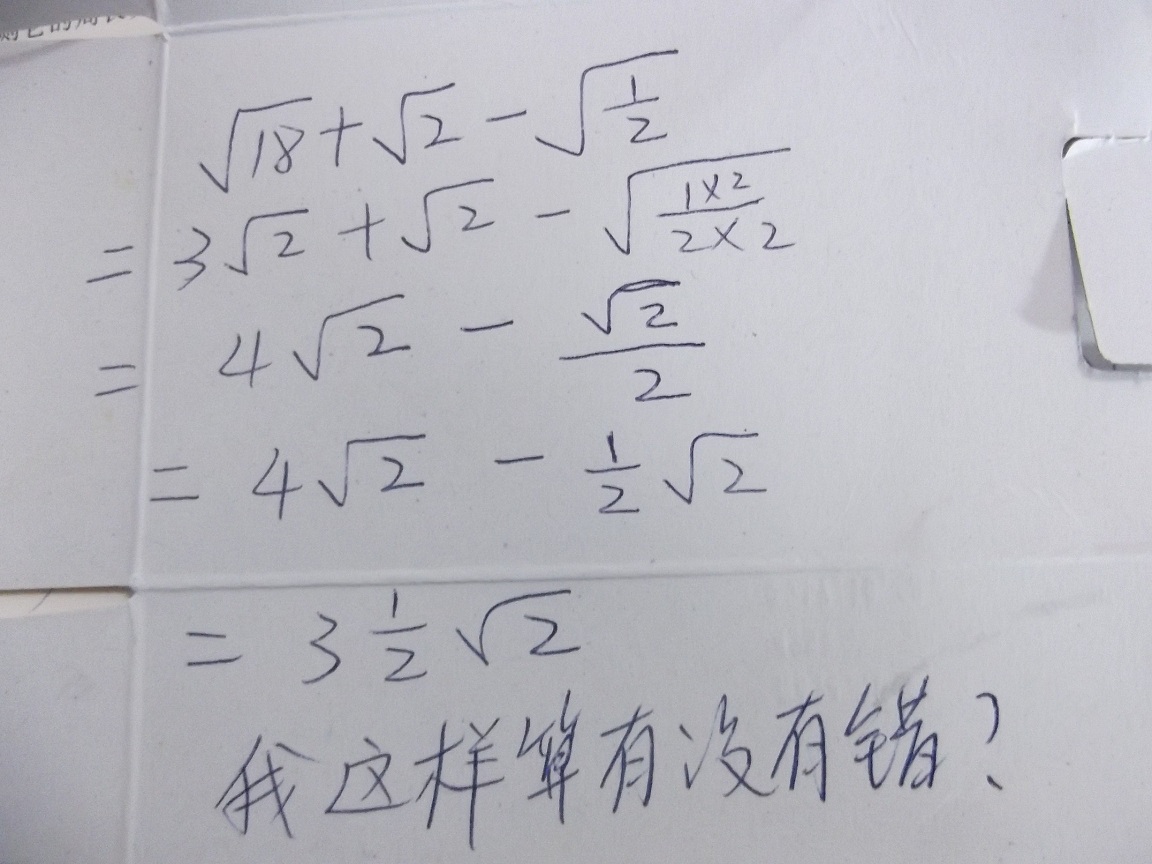 √18 + √2 - √(1/2)
= 3√2 + √2 - √((1×2)/(2×2))
= 4√2 - √2/2
= 4√2 - 1/2 √2
= 3 1/2 √2
我这样算有没有错?